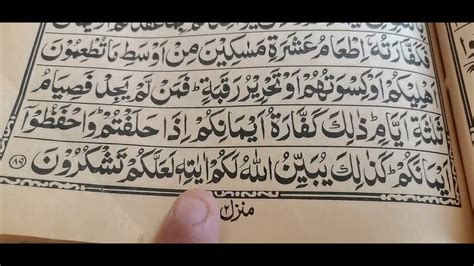 فَكَفَّارَتُهٗۤ اِطْعَامُ عَشَرَةِ مَسٰكِیْنَ مِنْ اَوْسَطِ مَا تُطْعِمُوْنَ
اَهْلِیْكُمْ اَوْ كِسْوَتُهُمْ اَوْ تَحْرِیْرُ رَقَبَةٍ ؕ فَمَنْ لَّمْ یَجِدْ فَصِیَامُ
ثَلٰثَةِ اَیَّامٍ ؕ ذٰلِكَ كَفَّارَةُ اَیْمَانِكُمْ اِذَا حَلَفْتُمْ ؕ وَ احْفَظُوْۤا
اَیْمَانَكُمْ ؕ كَذٰلِكَ یُبَیِّنُ اللّٰهُ لَكُمْ اٰیٰتِهٖ لَعَلَّكُمْ تَشْكُرُوْنَ ﴿۸۹﴾
منزل ۲